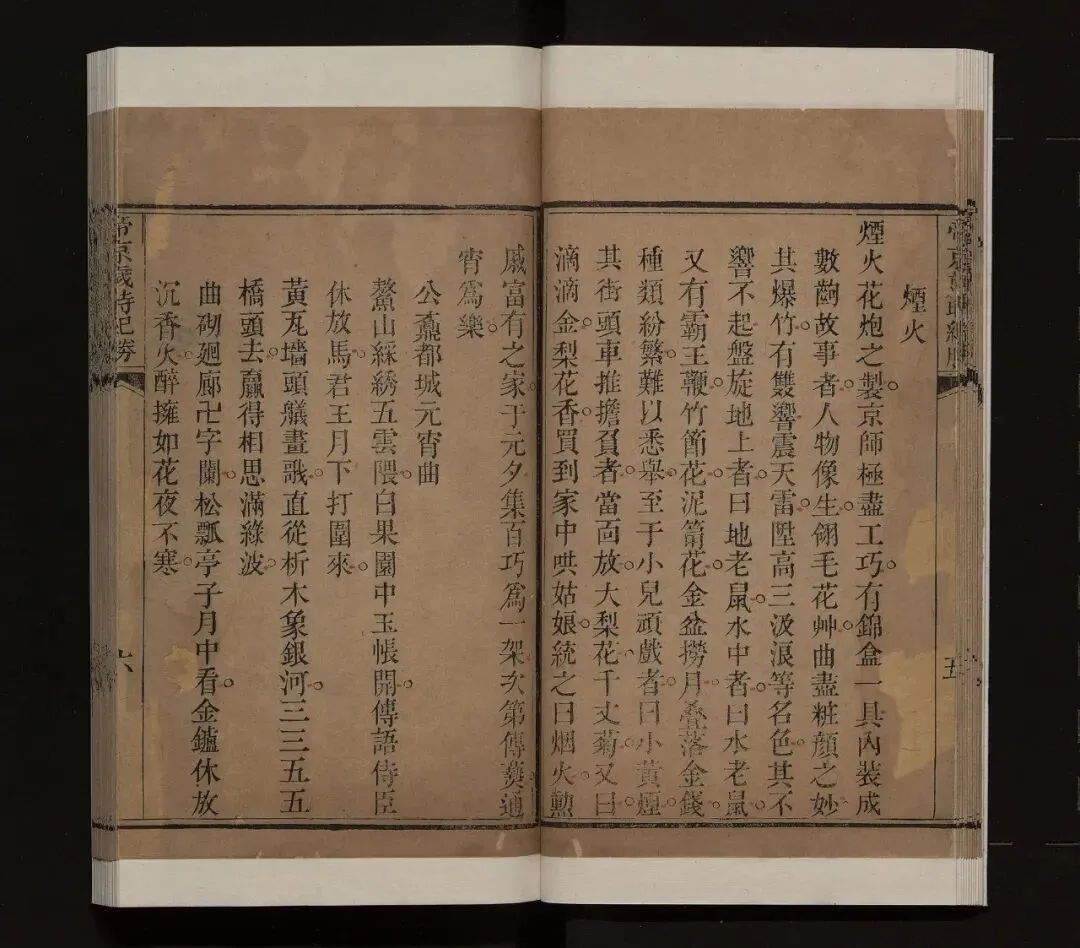 煙火
煙火花炮之製京師極盡工巧有錦盒一具內裝成
數齣故事者人物像生翎毛花艸曲盡粧顏之妙
其爆竹有雙響震天雷陞高三汲浪等名色其不
響不起盤旋地上者曰地老鼠水中者曰水老鼠
又有霸王鞭竹節花泥筩花金盆撈月叠落金錢
種類紛繁難以悉舉至于小兒頑戲者曰小黃煙
其街頭車推擔負者當面放大梨花千丈菊又曰
滴滴金梨花香買到家中哄姑娘統之曰烟火勲
戚富有之家于元夕集百巧爲一架次第傳爇通
宵爲樂
公鼐都城元宵曲
鰲山綵綉五雲隈白果園中玉帳開傳語侍臣
休放馬君王月下打圍來
黃瓦墻頭艤畫戢直從析木象銀河三三五五
橋頭去贏得相思滿綠波
曲砌廻廊卍字闌松瓢亭子月中看金鑪休放
沉香火醉擁如花夜不寒
帝京歲時紀勝
六
五